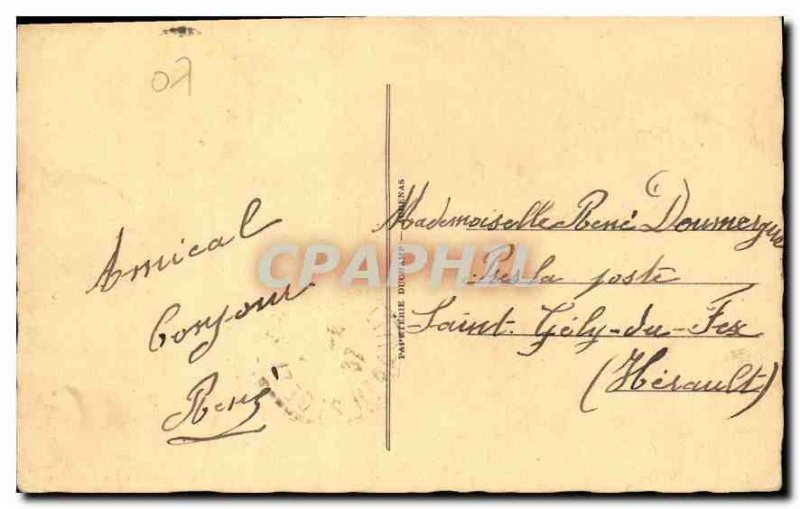 07
Amical
bonjour
René
PAPETERIE DUCHAMP —
Mademoiselle René Doumergue
Près la poste
Saint-Gély-du-Fex
(Hérault)
CPARAMA